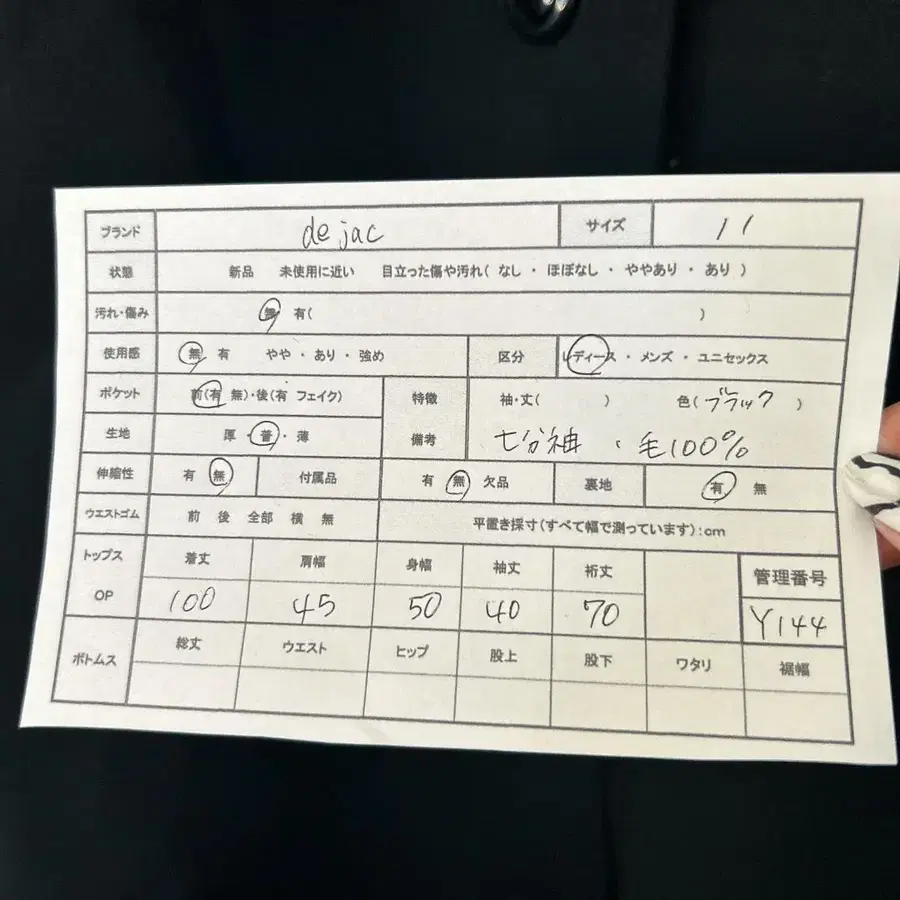 ブランド de jac サイズ 11
状態 新品 未使用に近い 目立った傷や汚れ( なし ・ ほぼなし ・ ややあり ・ あり )
汚れ・傷み 無 有( )
使用感 無 有 やや ・ あり ・ 強め 区分 レディース ・ メンズ ・ ユニセックス
ポケット 前(有 無)・後(有 フェイク) 特徴 袖・丈( ) 色( ブラック )
生地 厚 ・ 普 ・ 薄 備考 七分袖 ・ 毛100%
伸縮性 有 無 付属品 有 無 欠品 裏地 有 無
ウエストゴム 前 後 全部 横 無 平置き採寸(すべて幅で測っています):cm
トップス 着丈 肩幅 身幅 袖丈 裄丈 管理番号
OP 100 45 50 40 70 Y144
ボトムス 総丈 ウエスト ヒップ 股上 股下 ワタリ 裾幅